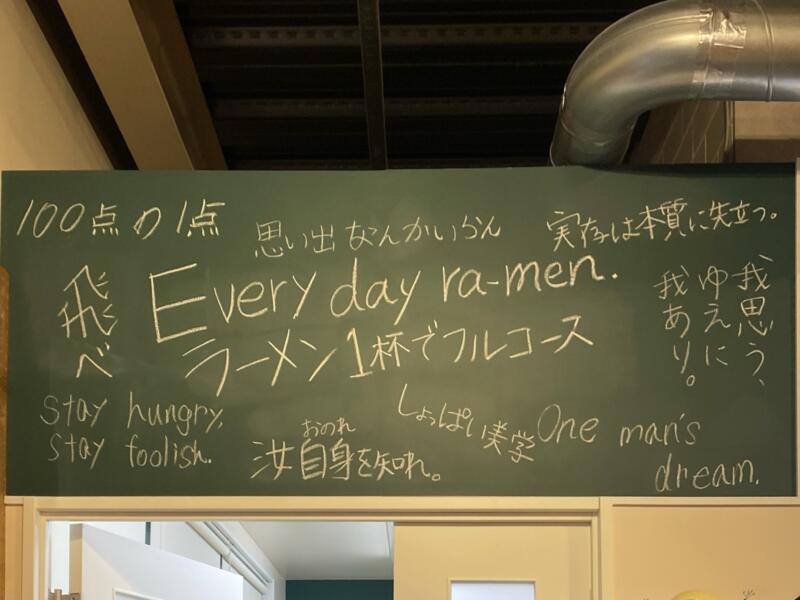 100点の1点
思い出なんかいらん
実存は本質に先立つ。
飛べ
Every day ra-men.
ラーメン1杯でフルコース
我思う、
ゆえに
我あり。
stay hungry,
stay foolish.
おのれ
汝自身を知れ。
しょっぱい美学
One man's
dream.